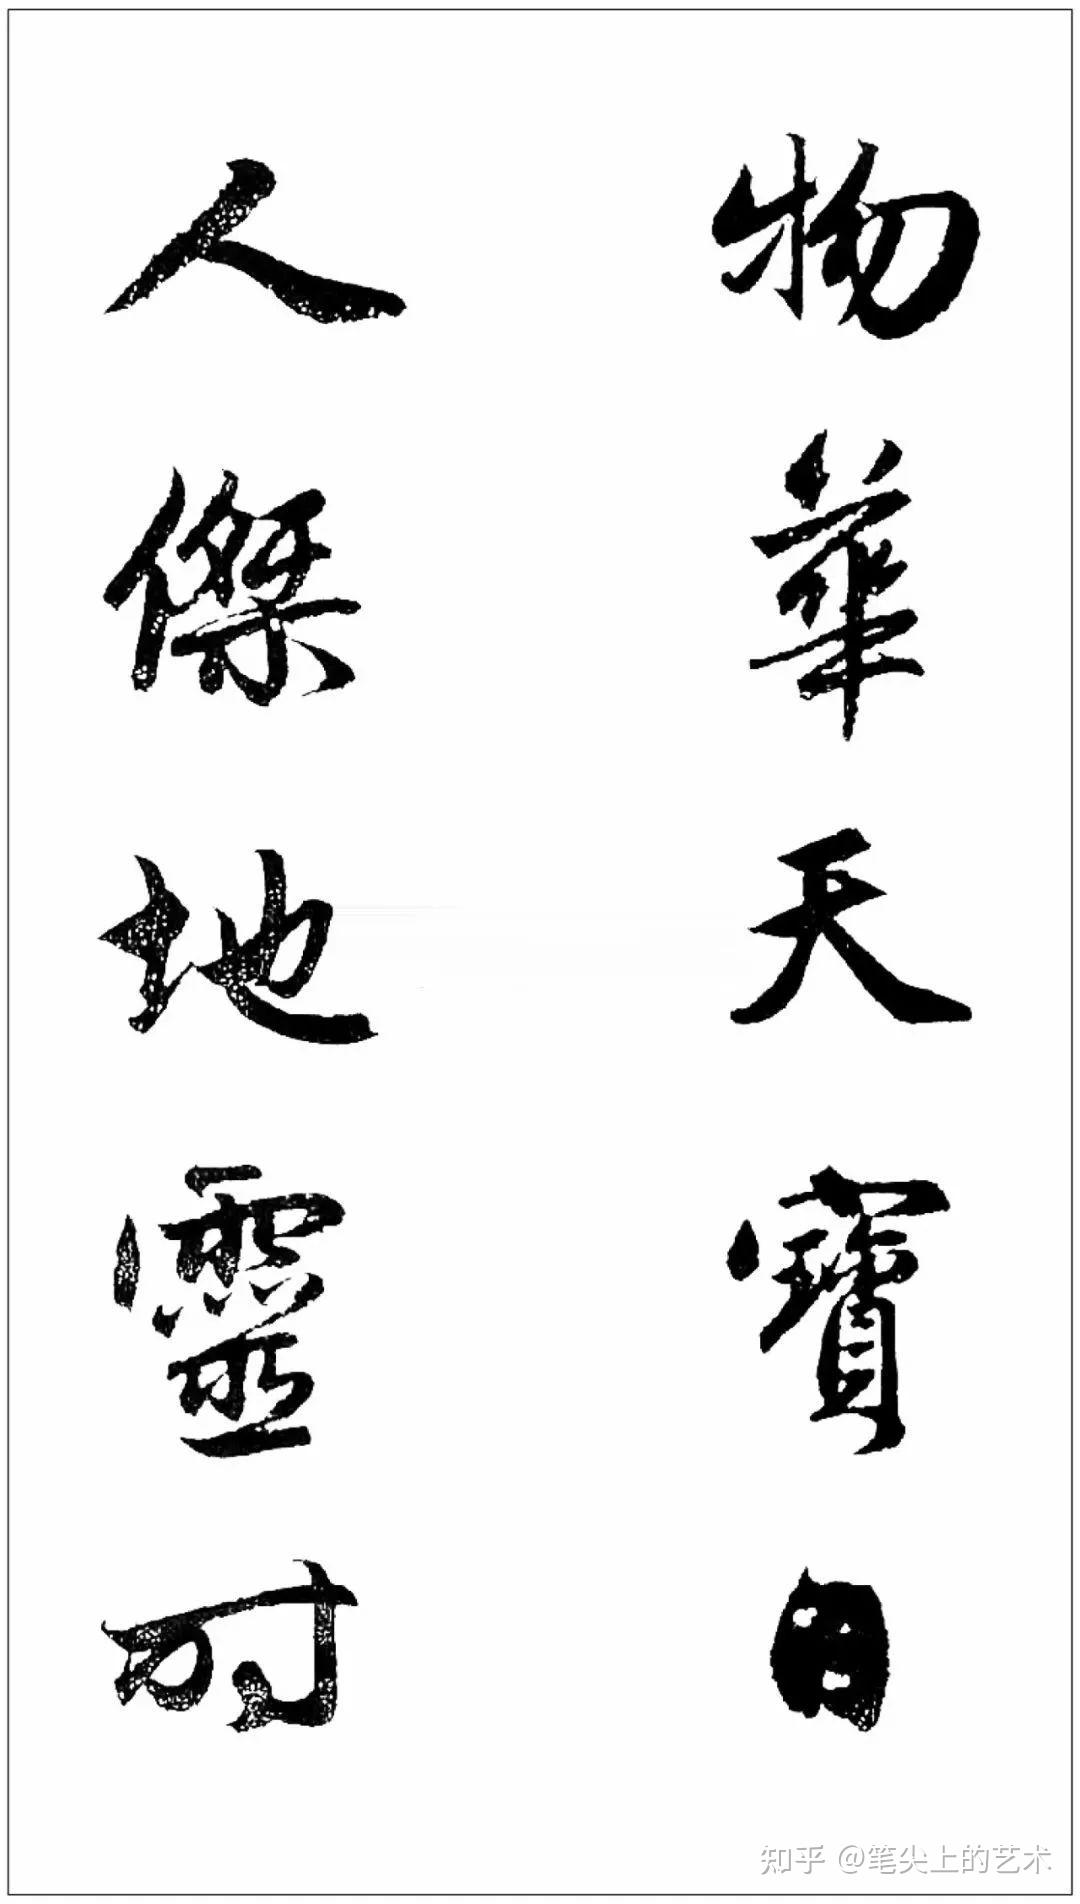 物華天寶日
人傑地靈时
知乎 @笔尖上的艺术